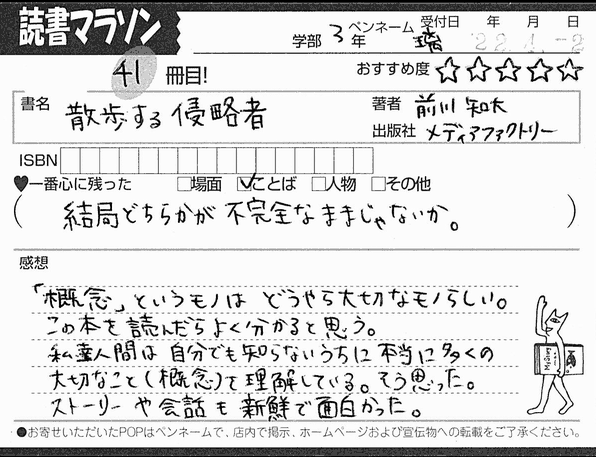 読書マラソン
学部 3年 ペンネーム 瑞 受付日 年 月 日
'22.4.-2
41 冊目!
おすすめ度 ☆☆☆☆☆
書名 散歩する侵略者
著者 前川 知大
出版社 メディアファクトリー
ISBN
♥一番心に残った □場面 ☑ことば □人物 □その他
(結局どちらかが不完全なままじゃないか。)
感想
「概念」というモノは どうやら大切なモノらしい。
この本を読んだらよく分かると思う。
私達人間は自分でも知らないうちに本当に多くの
大切なこと(概念)を理解している。そう思った。
ストーリーや会話も新鮮で面白かった。
●お寄せいただいたPOPはペンネームで、店内で掲示、ホームページおよび宣伝物への転載をご了承ください。